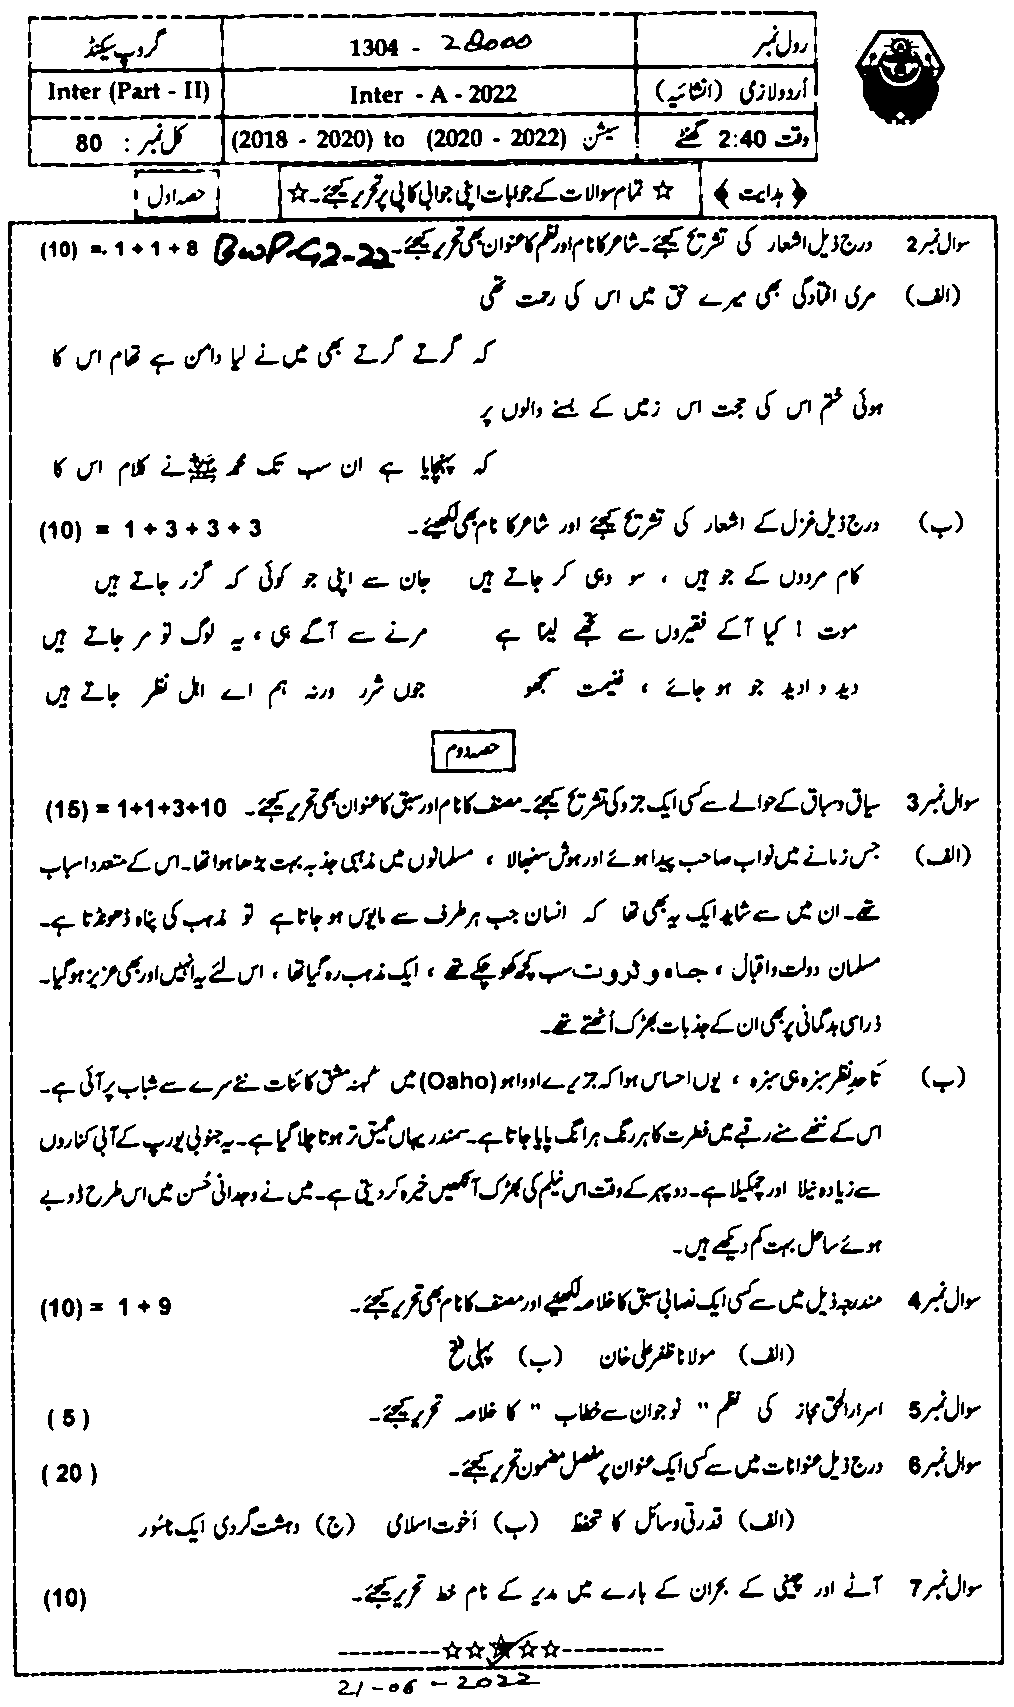 رول نمبر 1304 - 28000 گروپ سیکنڈ
اُردو لازمی (انشائیہ) Inter - A - 2022 Inter (Part - II)
وقت 2:40 گھنٹے سیشن (2018 - 2020) to (2020 - 2022) کل نمبر : 80
﴿ ہدایت ﴾ ☆ تمام سوالات کے جوابات اپنی جوابی کاپی پر تحریر کیجئے۔ ☆ حصہ اول
سوال نمبر 2 درج ذیل اشعار کی تشریح کیجئے۔ شاعر کا نام اور نظم کا عنوان بھی تحریر کیجئے۔ BWP-G2-22 (10) = 1 + 1 + 8
(الف) مری افتادگی بھی میرے حق میں اس کی رحمت تھی
کہ گرتے گرتے بھی میں نے لیا دامن ہے تھام اس کا
ہوئی ختم اس کی حجت اس زمیں کے بسنے والوں پر
کہ پہنچایا ہے ان سب تک محمد ﷺ نے کلام اس کا
(ب) درج ذیل غزل کے اشعار کی تشریح کیجئے اور شاعر کا نام بھی لکھیئے۔ (10) = 1 + 3 + 3 + 3
کام مردوں کے جو ہیں ، سو وہی کر جاتے ہیں جان سے اپنی جو کوئی کہ گزر جاتے ہیں
موت ! کیا آ کے فقیروں سے تجھے لینا ہے مرنے سے آگے ہی ، یہ لوگ تو مر جاتے ہیں
دید و ادید جو ہو جائے ، غنیمت سمجھو جوں شرر ورنہ ہم اے اہل نظر جاتے ہیں
حصہ دوم
سوال نمبر 3 سیاق و سباق کے حوالے سے کسی ایک جزو کی تشریح کیجئے۔ مصنف کا نام اور سبق کا عنوان بھی تحریر کیجئے۔ (15) = 1+1+3+10
(الف) جس زمانے میں نواب صاحب پیدا ہوئے اور ہوش سنبھالا ، مسلمانوں میں مذہبی جذبہ بہت بڑھا ہوا تھا۔ اس کے متعدد اسباب
تھے۔ ان میں سے شاید ایک یہ بھی تھا کہ انسان جب ہر طرف سے مایوس ہو جاتا ہے تو مذہب کی پناہ ڈھونڈتا ہے۔
مسلمان دولت و اقبال ، جاہ و ثروت سب کچھ کھو چکے تھے ، ایک مذہب رہ گیا تھا ، اس لئے یہ انہیں اور بھی عزیز ہو گیا۔
ذرا سی بدگمانی پر بھی ان کے جذبات بھڑک اُٹھتے تھے۔
(ب) تا حدِ نظر سبزہ ہی سبزہ ، یوں احساس ہوا کہ جزیرے اوواہو (Oaho) میں کہنہ مشق کائنات نئے سرے سے شباب پر آئی ہے۔
اس کے ننھے منے رقبے میں فطرت کا ہر رنگ ہر انگ پایا جاتا ہے۔ سمندر یہاں عمیق تر ہوتا چلا گیا ہے۔ یہ جنوبی یورپ کے آبی کناروں
سے زیادہ نیلا اور چمکیلا ہے۔ دوپہر کے وقت اس نیلم کی بھڑک آنکھیں خیرہ کر دیتی ہے۔ میں نے وجدانی حُسن میں اس طرح ڈوبے
ہوئے ساحل بہت کم دیکھے ہیں۔
سوال نمبر 4 مندرجہ ذیل میں سے کسی ایک نصابی سبق کا خلاصہ لکھیئے اور مصنف کا نام بھی تحریر کیجئے۔ (10) = 1 + 9
(الف) مولانا ظفر علی خان (ب) پہلی فتح
سوال نمبر 5 اسرار الحق مجاز کی نظم " نوجوان سے خطاب " کا خلاصہ تحریر کیجئے۔ ( 5 )
سوال نمبر 6 درج ذیل عنوانات میں سے کسی ایک عنوان پر مفصل مضمون تحریر کیجئے۔ ( 20 )
(الف) قدرتی وسائل کا تحفظ (ب) اُخوت اسلامی (ج) دہشت گردی ایک ناسُور
سوال نمبر 7 آٹے اور چینی کے بحران کے بارے میں مدیر کے نام خط تحریر کیجئے۔ (10)
----------☆☆★☆☆----------
21-06-2022